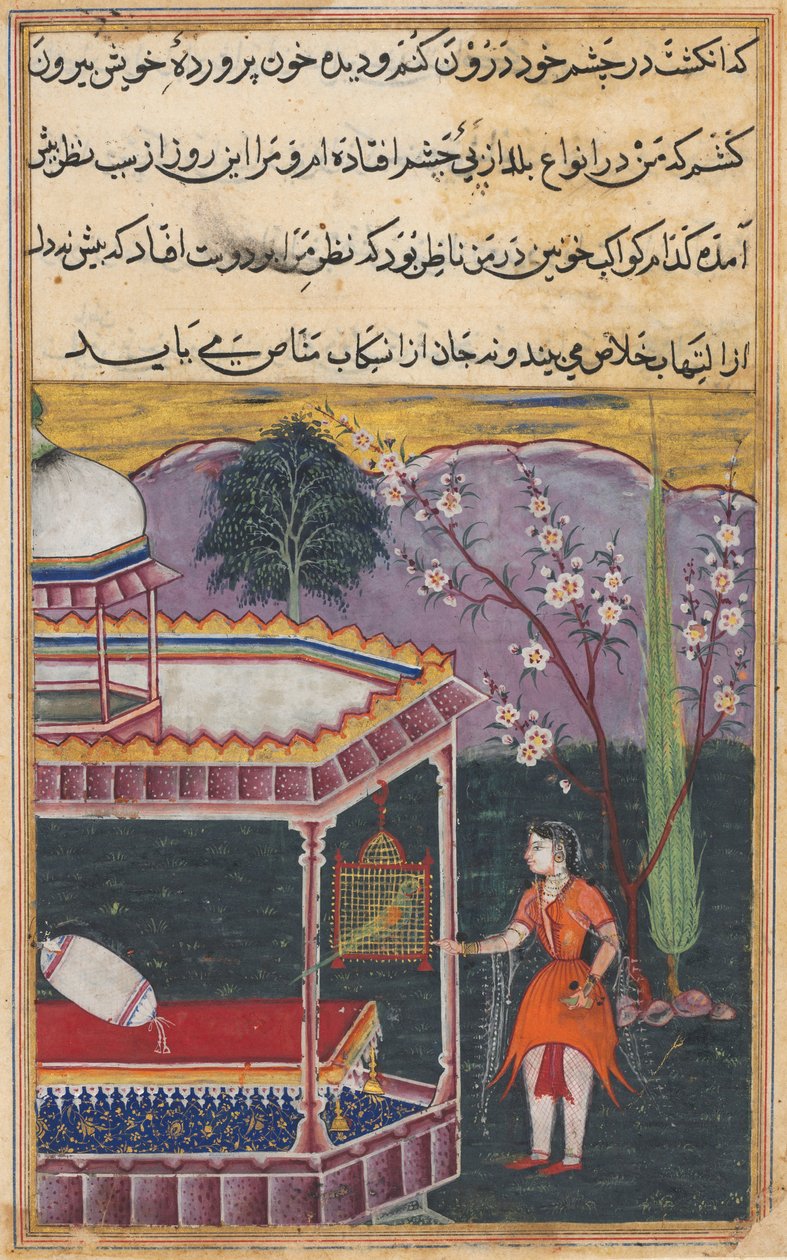 که انکشت در چشم خود درون کنم و دیده خون پروردهٔ خویش بیرون
کشم که من در انواع بلا از پئ چشم افتاده ام و مرا این روز از سبب نظر پیش
آمده کدام کواکب خونین در من ناظر بود که نظر مرا بر دوست افتاد که بیش نه دل
از التهاب خلاص می بیند و نه جان از انسکاب مناص می یابد